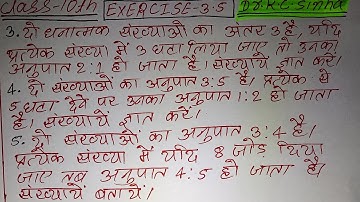 CLASS-10th EXERCISE-3.5 Dr. K.C Sinha
3. दो धनात्मक संख्याओं का अंतर 3 है, यदि
प्रत्येक संख्या में 3 घटा लिया जाए तो उनका
अनुपात 2:1 हो जाता है। संख्यायें ज्ञात करें।
4. दो संख्याओं का अनुपात 3:5 है। प्रत्येक से
5 घटा देने पर उनका अनुपात 1:2 हो जाता
है। संख्यायें ज्ञात करें।
5. दो संख्याओं का अनुपात 3:4 है।
प्रत्येक संख्या में यदि 8 जोड़ दिया
जाए तब अनुपात 4:5 हो जाता है।
संख्यायें बतायें।